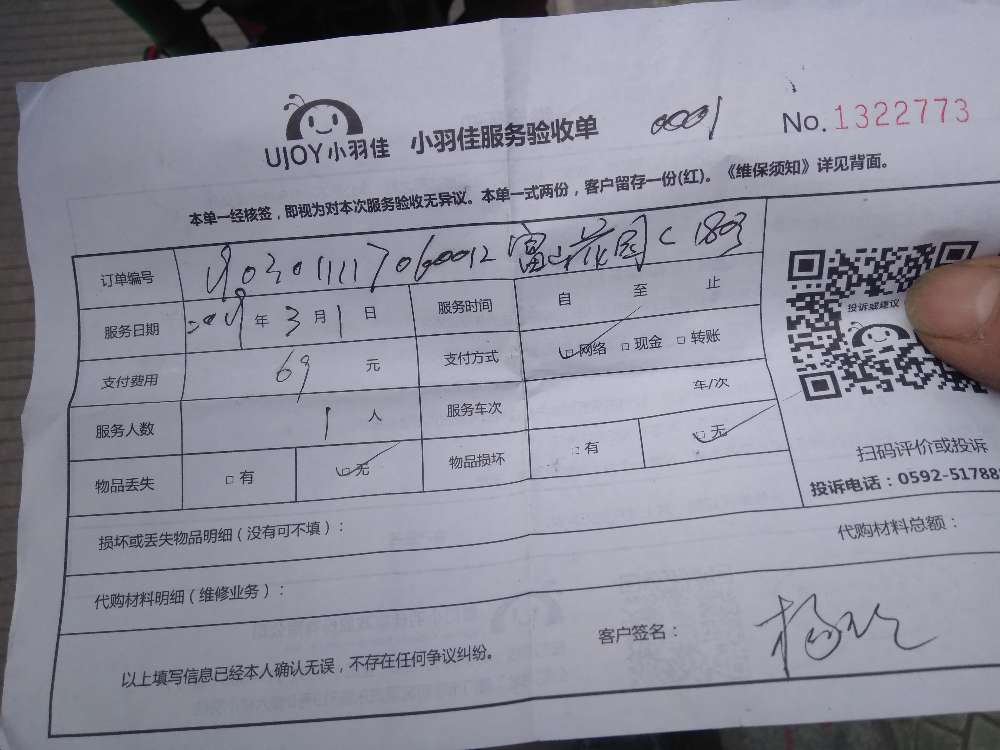 UJOY小羽佳 小羽佳服务验收单 0001 No.1322773
本单一经核签，即视为对本次服务验收无异议。本单一式两份，客户留存一份(红)。《维保须知》详见背面。
订单编号 富山花园C 1803
服务日期 2019年3月1日 服务时间 自 至 止
支付费用 69 元 支付方式 网络 现金 转账
服务人数 1 人 服务车次 车/次
物品丢失 有 无 物品损坏 有 无
投诉或建议
扫码评价或投诉
投诉电话：0592-51788
损坏或丢失物品明细（没有可不填）：
代购材料总额：
代购材料明细（维修业务）：
以上填写信息已经本人确认无误，不存在任何争议纠纷。
客户签名：